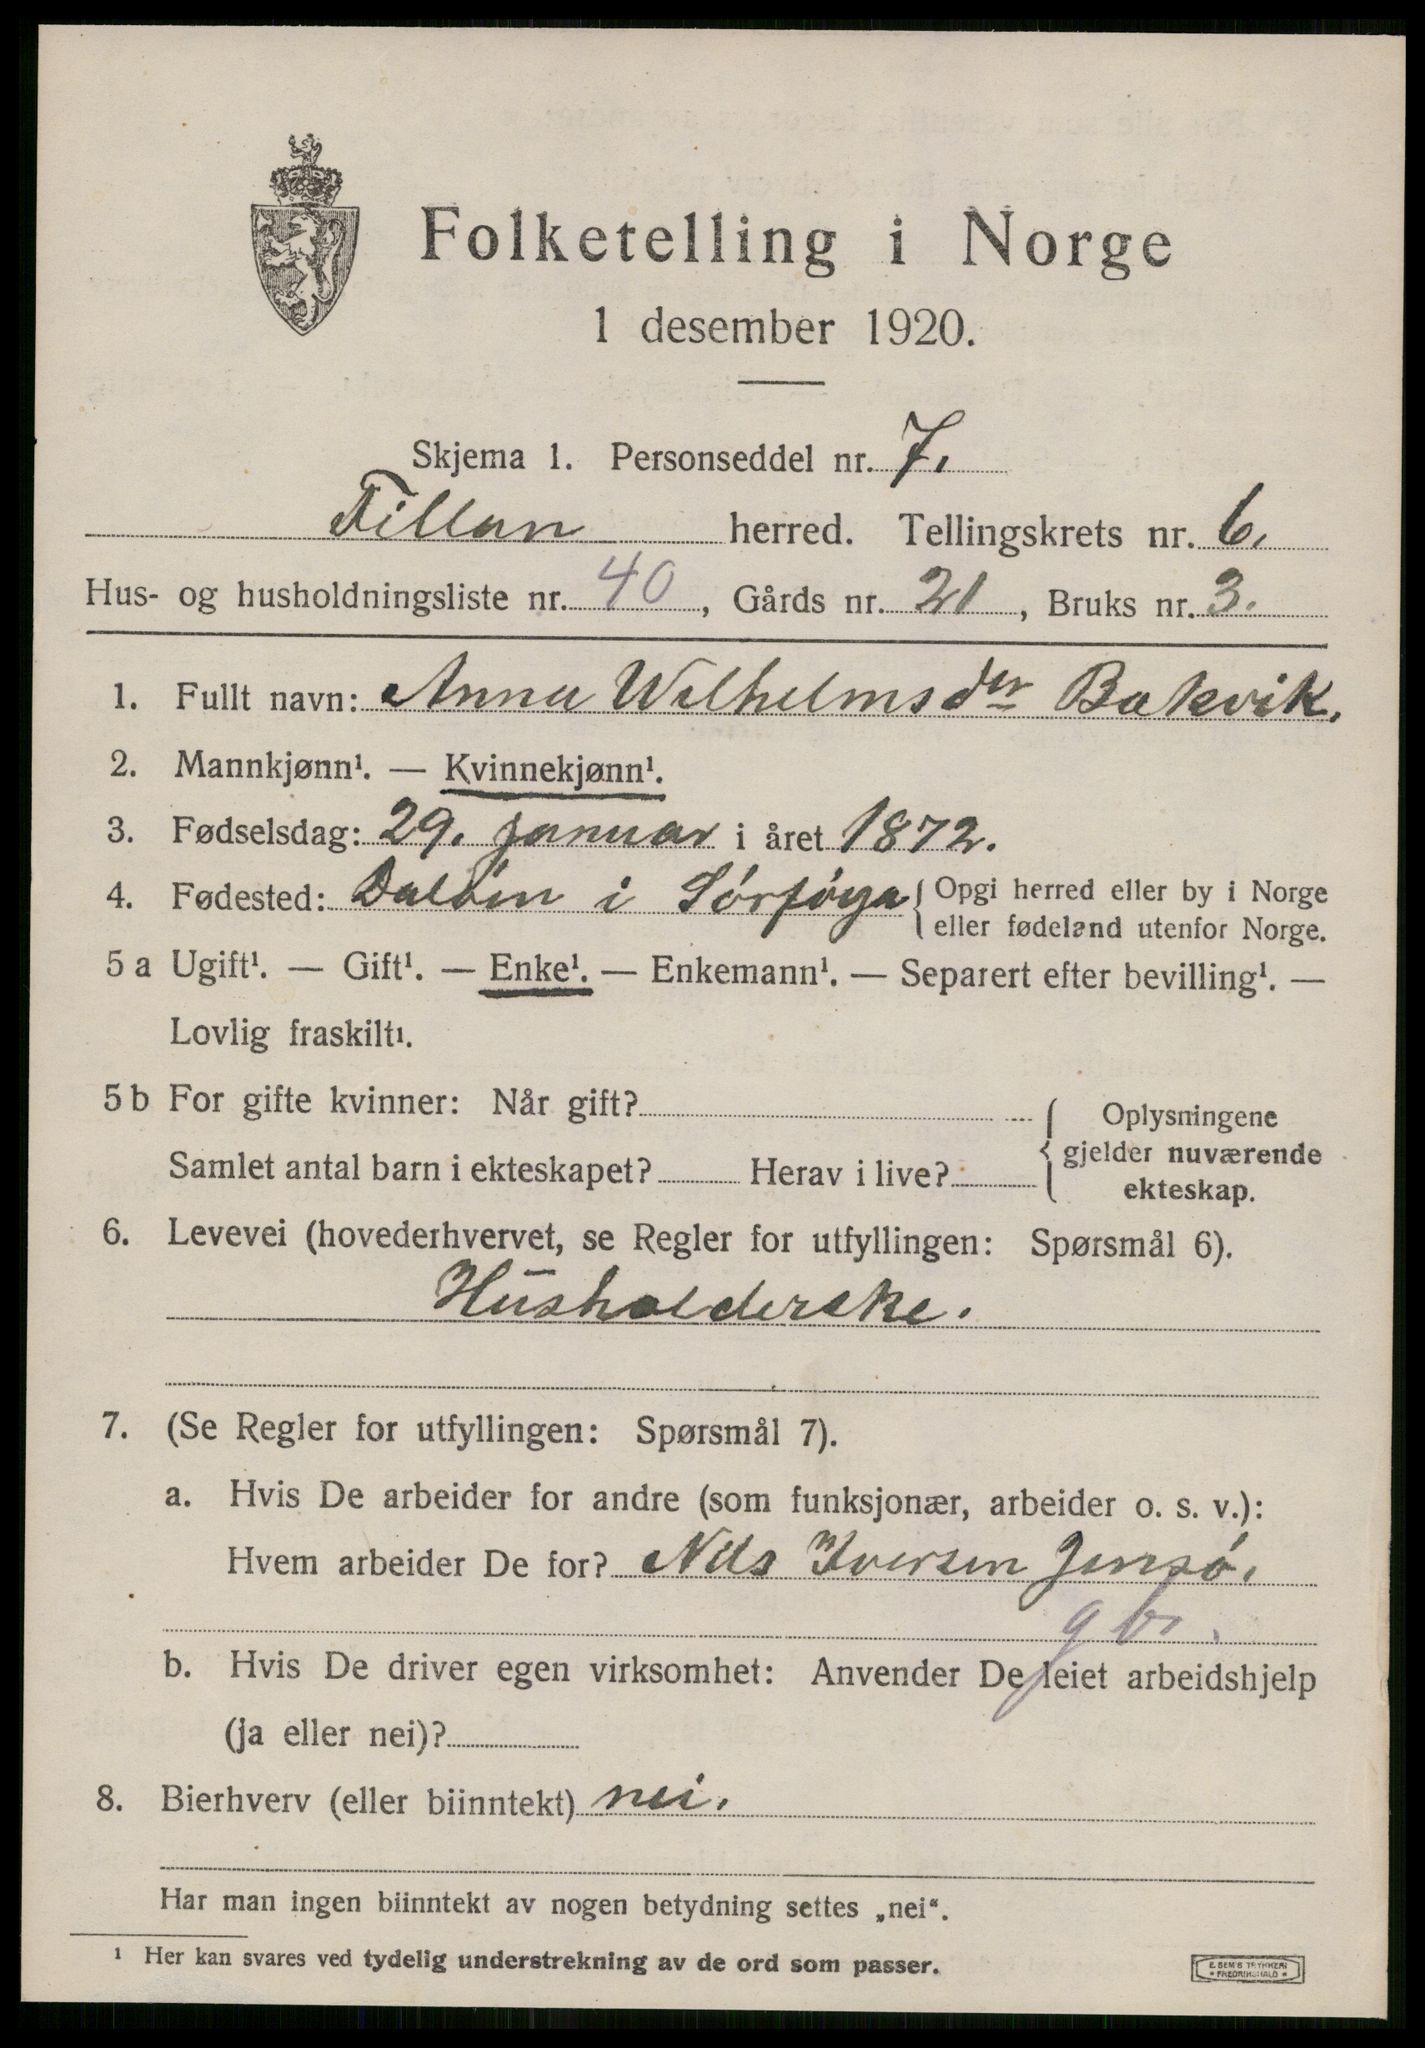 Folketelling i Norge
1 desember 1920.
Skjema 1. Personseddel nr. 7.
Fillan herred. Tellingskrets nr. 6.
Hus- og husholdningsliste nr. 40, Gårds nr. 21, Bruks nr. 3.
1. Fullt navn: Anna Wilhelmsdtr Bakvik.
2. Mannkjønn¹. — Kvinnekjønn¹.
3. Fødselsdag: 29. januar i året 1872.
4. Fødested: i Sørfrøya { Opgi herred eller by i Norge
eller fødeland utenfor Norge.
5 a Ugift¹. — Gift¹. — Enke¹. — Enkemann¹. — Separert efter bevilling¹. —
Lovlig fraskilt¹.
5 b For gifte kvinner: Når gift?
Samlet antal barn i ekteskapet? Herav i live?
{ Oplysningene
gjelder nuværende
ekteskap.
6. Levevei (hovederhvervet, se Regler for utfyllingen: Spørsmål 6).
Husholderske.
7. (Se Regler for utfyllingen: Spørsmål 7).
a. Hvis De arbeider for andre (som funksjonær, arbeider o. s. v.):
Hvem arbeider De for? Nils Iversen Jensø.
gbr.
b. Hvis De driver egen virksomhet: Anvender De leiet arbeidshjelp
(ja eller nei)?
8. Bierhverv (eller biinntekt) nei.
Har man ingen biinntekt av nogen betydning settes „nei“.
¹ Her kan svares ved tydelig understrekning av de ord som passer.
E. SEM'S TRYKKERI
★ FREDRIKSHALD ★